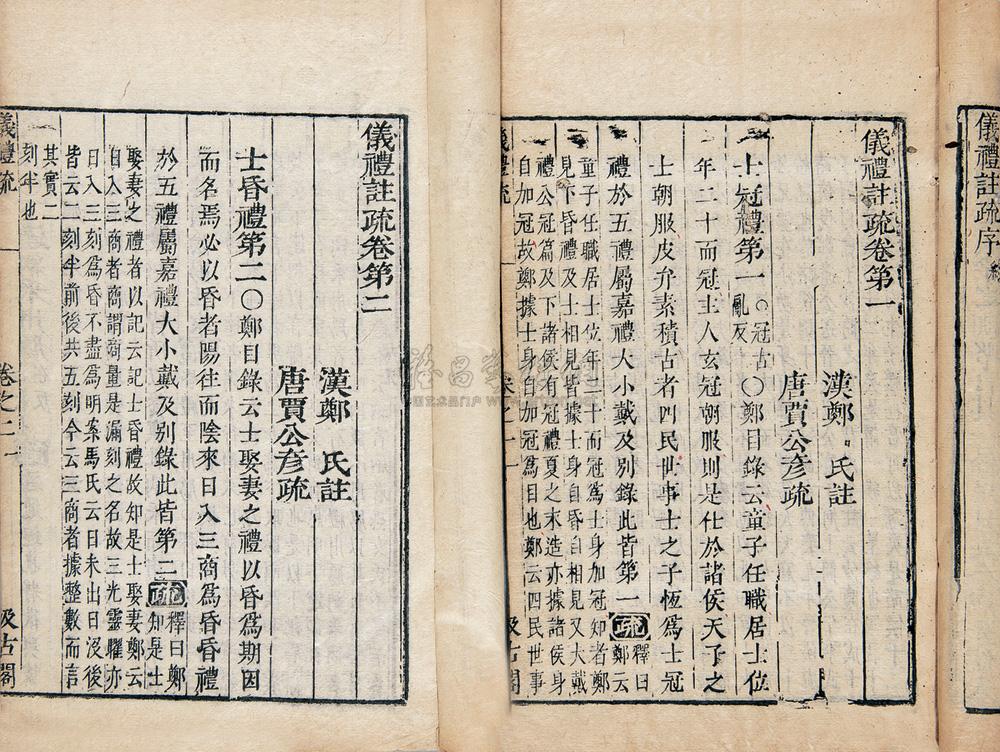 儀禮註疏序
儀禮註疏卷第一
漢鄭 氏註
唐賈公彥疏
士冠禮第一○冠古亂反○鄭目錄云童子任職居士位
年二十而冠主人玄冠朝服則是仕於諸侯天子之
士朝服皮弁素積古者四民世事士之子恆為士冠
禮於五禮屬嘉禮大小戴及別錄此皆第一疏釋曰鄭云
童子任職居士位年二十而冠為士身加冠知者鄭
見下昏禮及士相見皆據士身自昏自相見又大戴
禮公冠篇及下諸侯有冠禮夏之末造亦據諸侯身
自加冠故鄭據士身自加冠為目也鄭云四民世事
儀禮疏
卷之一
汲古閣
儀禮註疏卷第二
漢鄭 氏註
唐賈公彥疏
士昏禮第二○鄭目錄云士娶妻之禮以昏為期因
而名焉必以昏者陽往而陰來日入三商為昏昏禮
於五禮屬嘉禮大小戴及別錄此皆第二疏釋曰鄭知是士
娶妻之禮者以記云記士昏禮故知是士娶妻鄭云
日入三商者商謂商量是漏刻之名故三光靈曜亦
日入三刻為昏不盡為明案馬氏云日未出日沒後
皆云二刻半前後共五刻今云三商者據整數而言
其實二刻半也
儀禮疏
卷之二
一
汲古閣